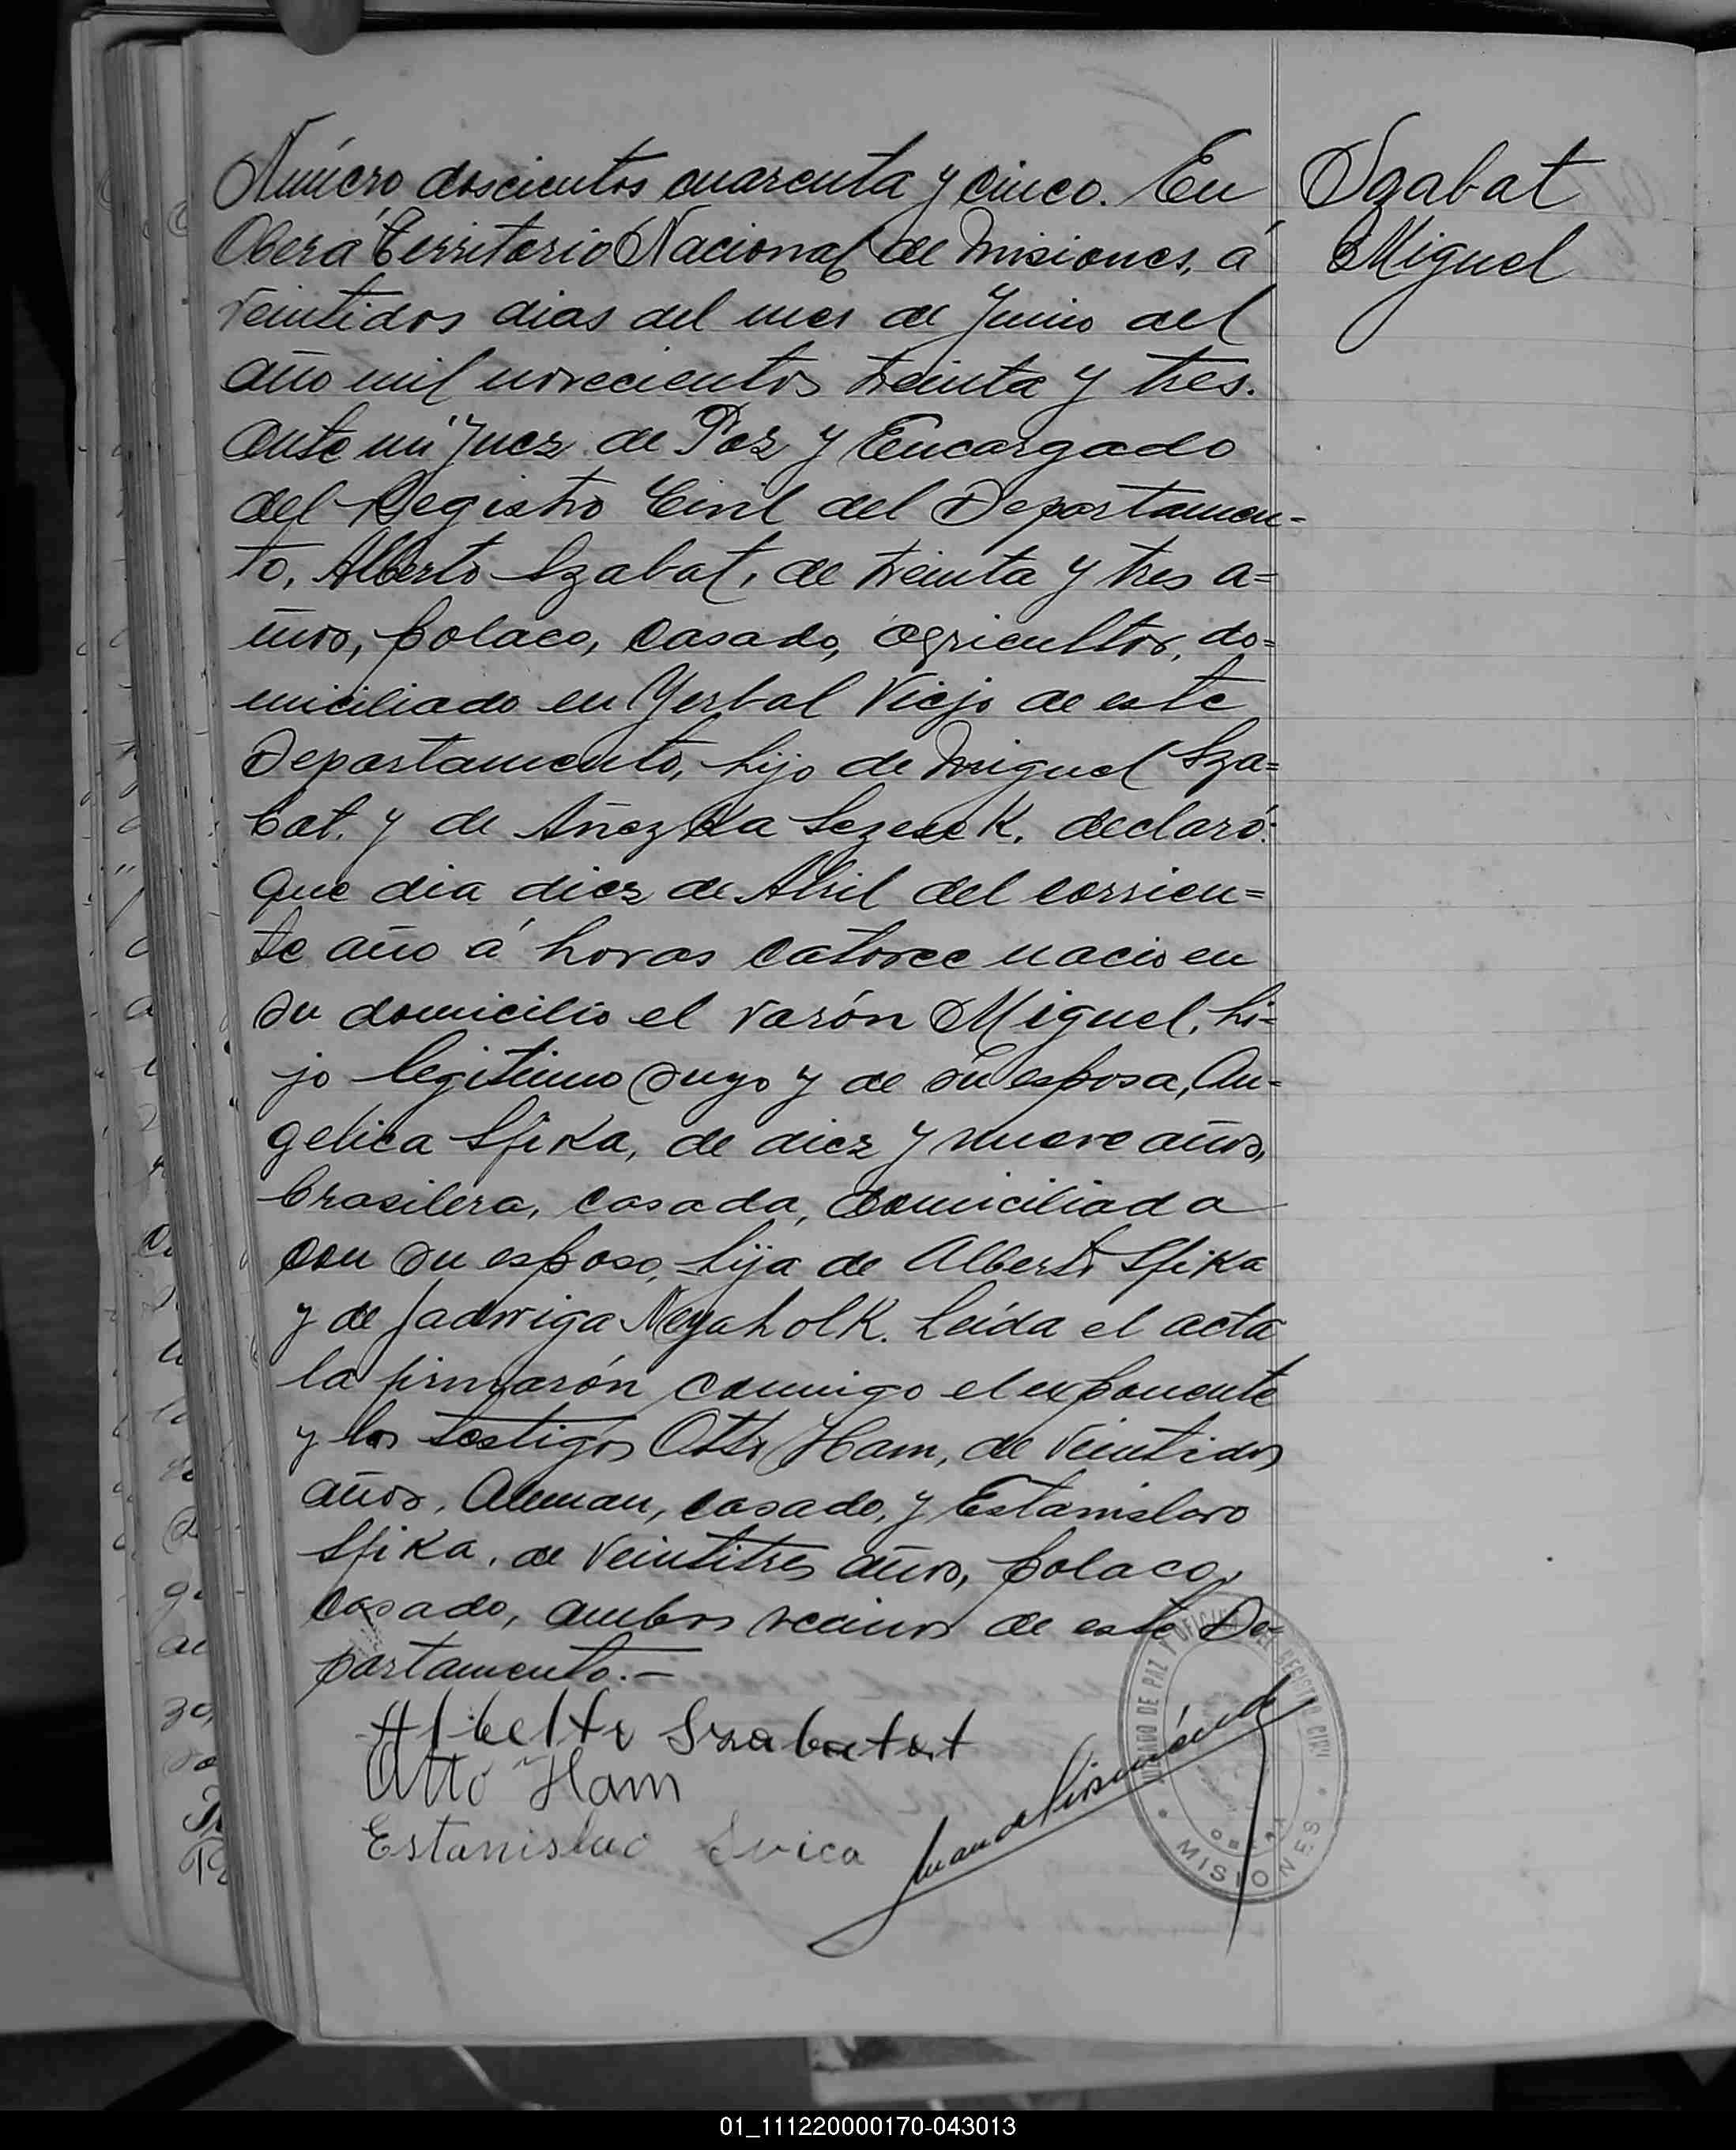 Número doscientos cuarenta y cinco. En
Oberá Territorio Nacional de Misiones, á
veintidos dias del mes de Junio del
año mil novecientos treinta y tres.
Ante mi Juez de Paz y Encargado
del Registro Civil del Departamen-
to, Alberto Szabat, de treinta y tres a=
ños, polaco, casado, agricultor, do=
miciliado en Yerbal Viejo de este
Departamento, hijo de Miguel Sza=
bat, y de declaró:
Que dia diez de Abril del corrien=
te año á horas catorce nacio en
su domicilio el varón Miguel, hi-
jo legitimo suyo y de su esposa, An-
gelica Spika, de diez y nueve años,
brasilera, casada, domiciliada
con su esposo, hija de Alberto Spika
y de Jadwiga Leída el acta
la firmarón conmigo el exponente
y los testigos Otto Ham, de veintidos
años, Aleman, casado, y Estanislavo
Spika, de veintitres años, polaco,
casado, ambos vecinos de este De-
partamento.-
Szabat
Miguel
Otto Ham
Estanislao Svica
JUZGADO DE PAZ Y OFICINA DEL REGISTRO CIVIL
OBERA
MISIONES
01_111220000170-043013